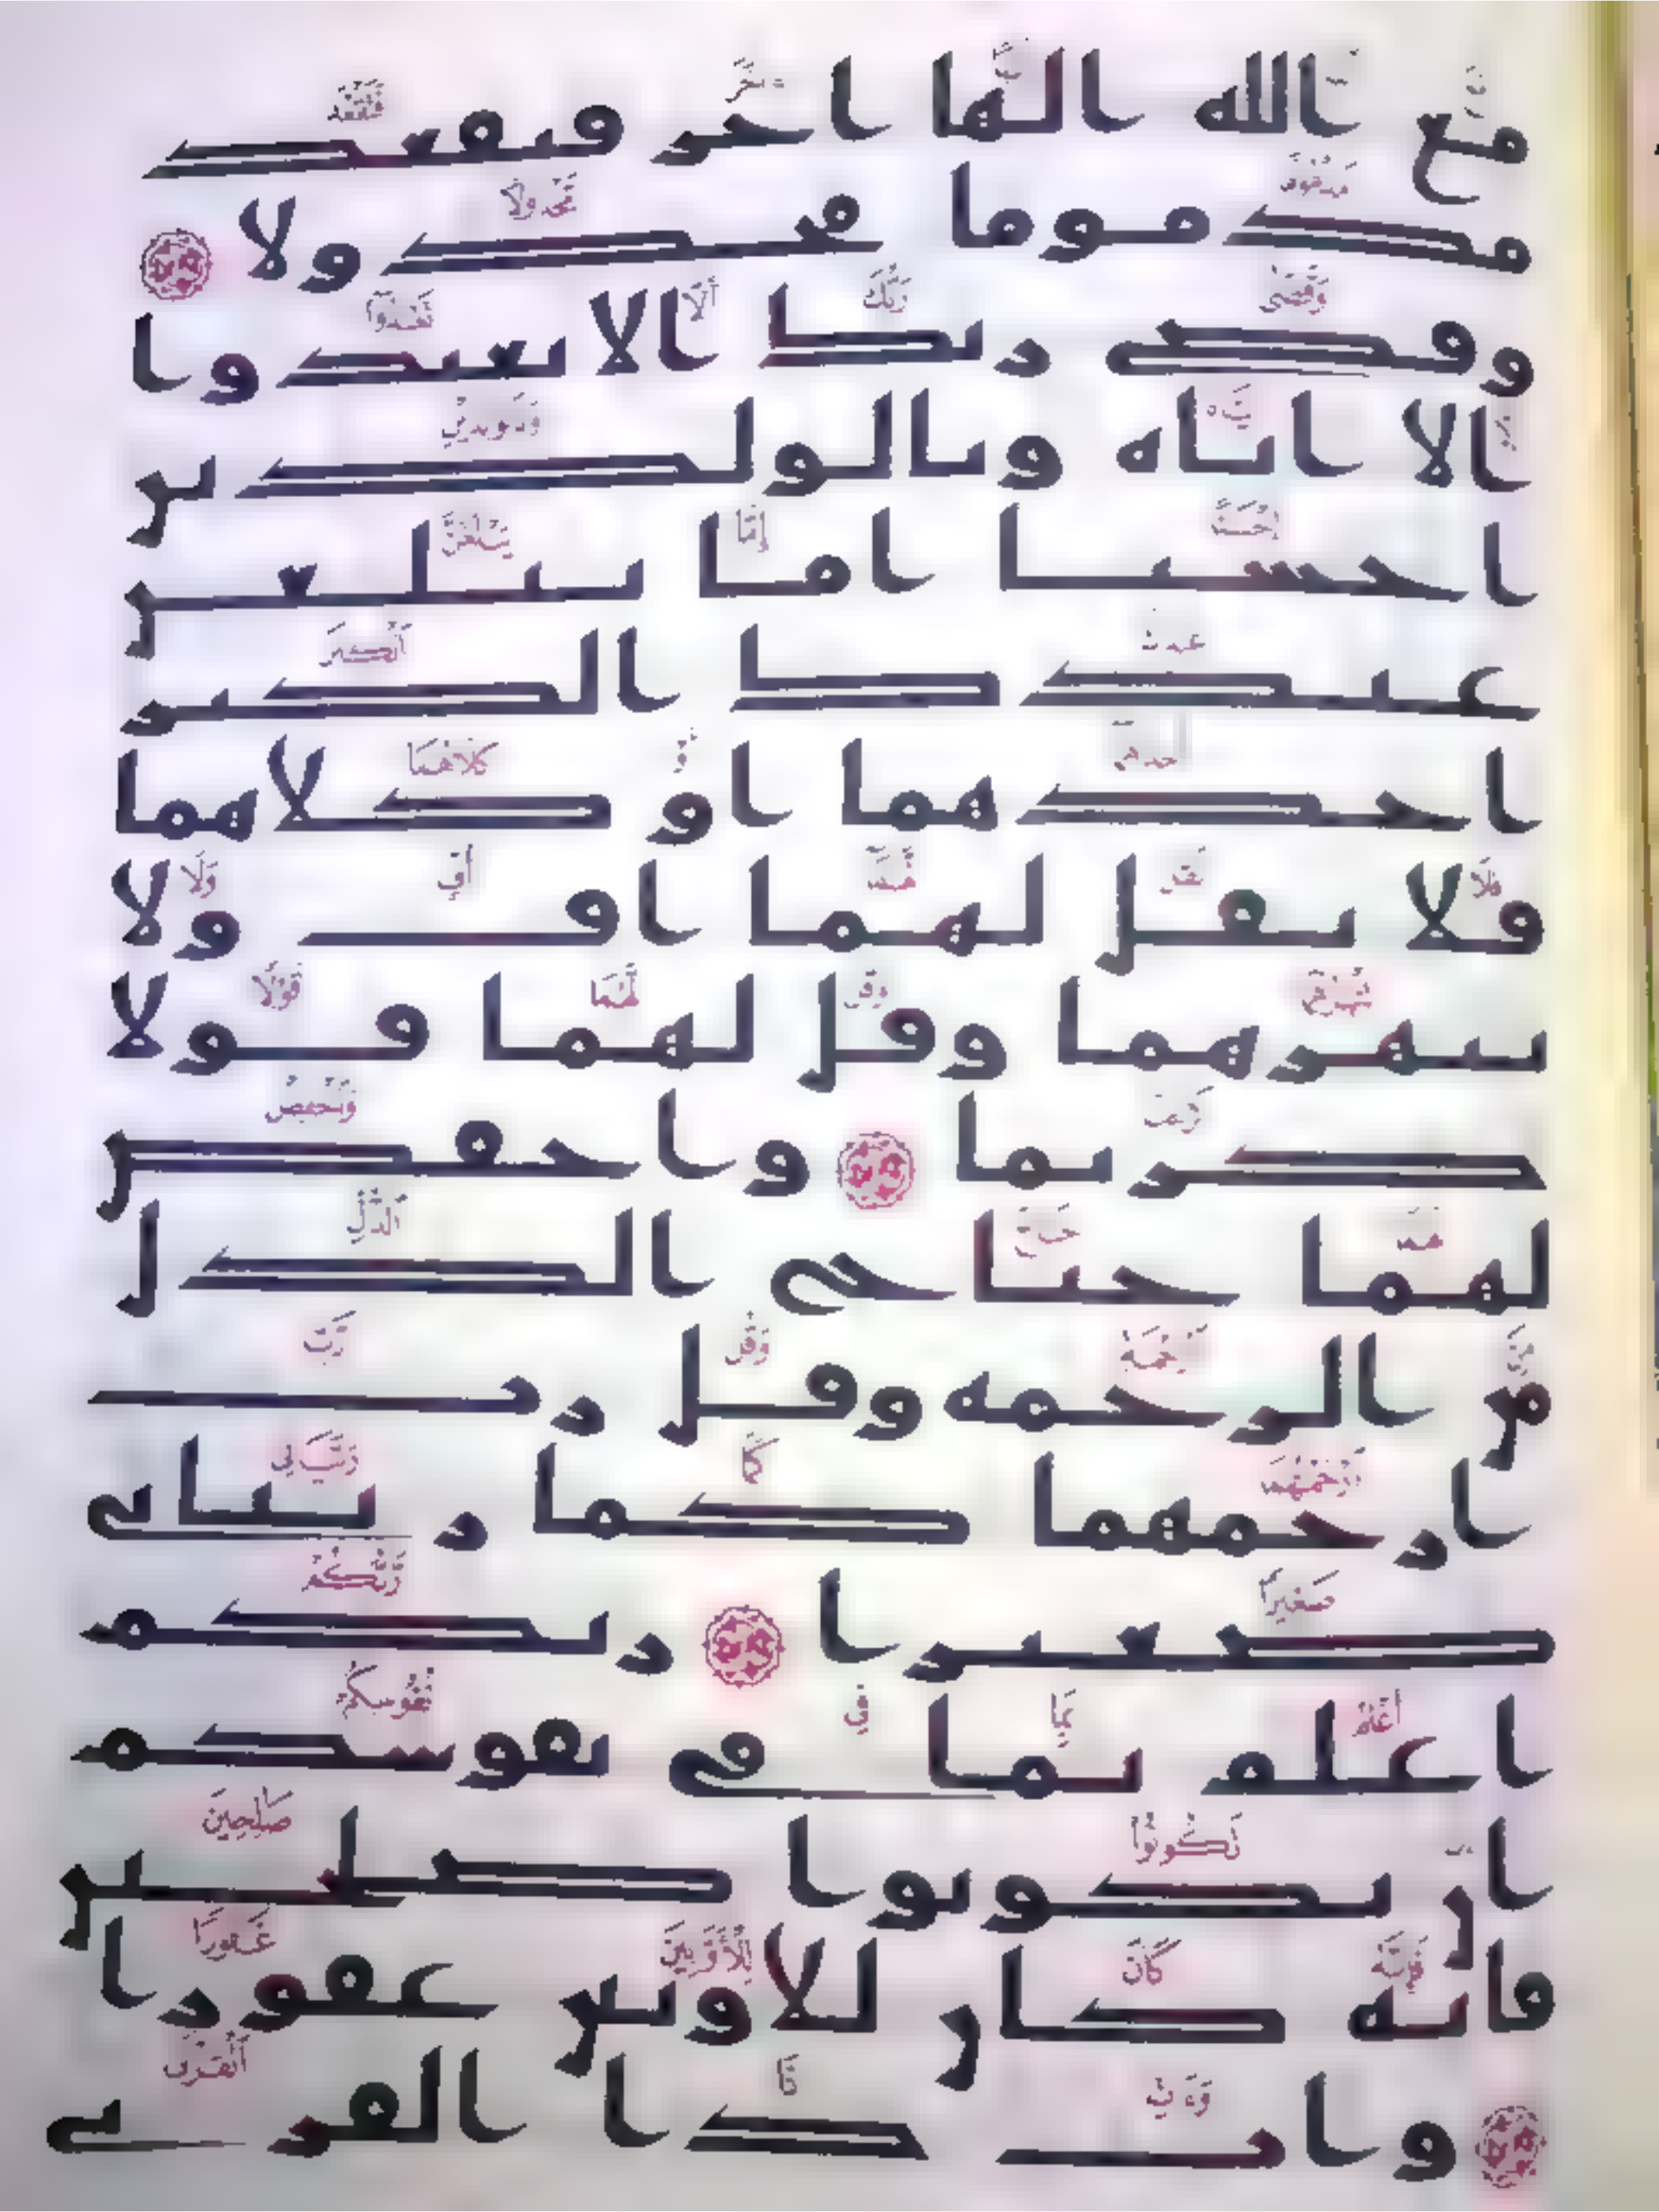 مع الله الها اخر فتقعد
مذموما مخذولا
وقضى ربك الا تعبدوا
الا اياه وبالولدين
احسنا اما يبلغن
عندك الكبر
احدهما او كلاهما
فلا تقل لهما اف ولا
تنهرهما وقل لهما قولا
كريما واخفض
لهما جناح الذل
من الرحمه وقل رب
ارحمهما كما ربياني
صغيرا ربكم
اعلم بما في نفوسكم
ان تكونوا صلحين
فانه كان للاوبين غفورا
وات ذا القربى